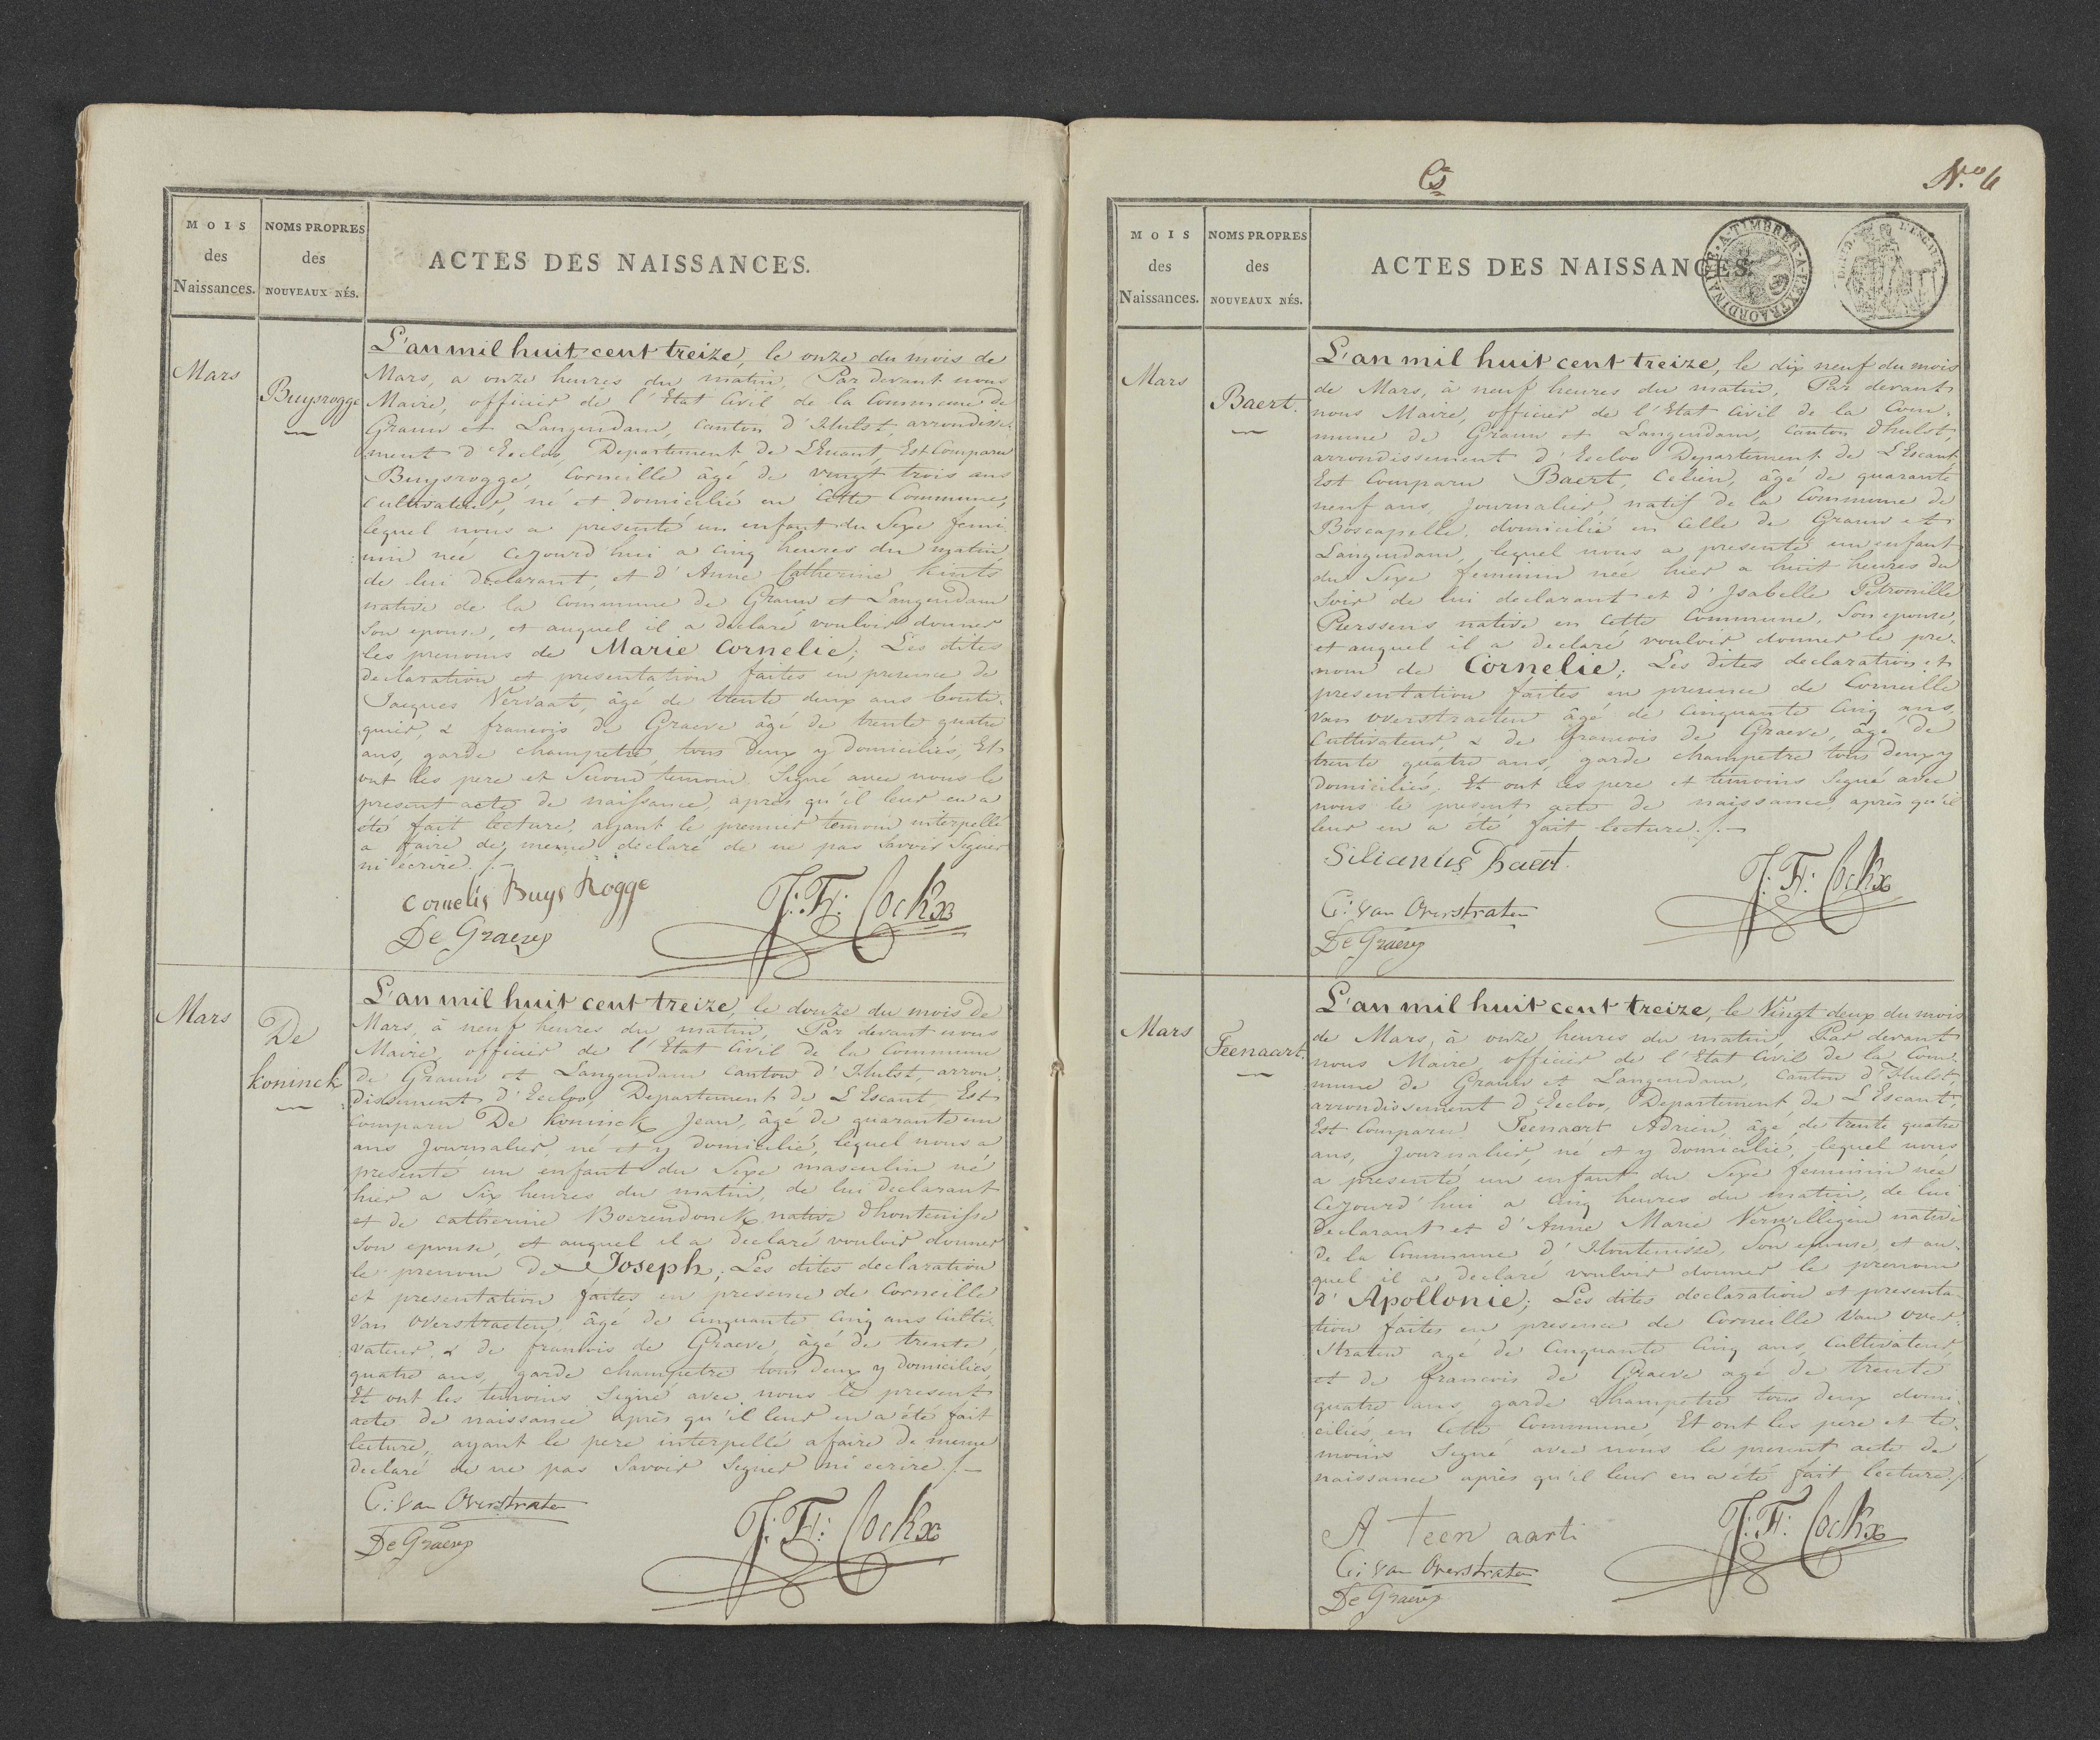 MOIS
des
Naissances.
NOMS PROPRES
des
NOUVEAUX NÉS.
ACTES DES NAISSANCES.
Mars
Buysrogge
L'an mil huit cent treize, le onze du mois de
Mars, a onze heures du matin, Par devant nous
Maire, officier de l'Etat Civil de la Commune de
Graauw et Langendam, Canton d'Hulst, arrondisse-
ment d'Eecloo, Departement de L'Escaut, Est Comparu
Buysrogge, Corneille âgé de vingt trois ans
Cultivateur, né et domicilié en Cette Commune,
lequel nous a presenté un enfant du Sexe femi-
nin née Cejourd'hui a cinq heures du matin,
de lui declarant, et d'Anne Catherine Kints
native de la Commune de Graauw et Langendam
Son epouse, et auquel il a declaré vouloir donner
les prenoms de Marie Cornelie; Les dites
declaration et presentation faites en presence de
Jacques Vervaat, âgé de trente deux ans bouti-
quier, & francois de Graeve âgé de trente quatre
ans, garde champetre, tous deux y domiciliés, Et
ont les pere et Second temoin Signé avec nous le
present acte de naissance, après qu'il leur en a
été fait lecture, ayant le premier temoin interpellé
a faire de meme declaré de ne pas Savoir Signer
ni écrire./.-
Cornelis Buys Rogge
De Graeve
J: F: Cockx
Mars
De
Koninck
L'an mil huit cent treize, le douze du mois de
Mars, à neuf heures du matin, Par devant nous
Maire, officier de l'Etat Civil de la Commune
de Graauw et Langendam Canton d'Hulst, arron-
dissement d'Eecloo, Departement de L'Escaut, Est
Comparu De Koninck Jean, âgé de quarante un
ans Journalier, né et y domicilié, lequel nous a
presenté un enfant du Sexe masculin né
hier a Six heures du matin, de lui declarant
et de Catherine Boerendonck native d'hontenisse
Son epouse, et auquel il a declaré vouloir donner
le prenom de Joseph; Les dites declaration
et presentation faites en presence de Corneille
Van Overstraeten, âgé de Cinquante Cinq ans Culti-
vateur, & de francois de Graeve, âgé de trente
quatre ans, garde champetre tous deux y domiciliés,
Et ont les temoins Signé avec nous le present
acte de naissance après qu'il leur en a été fait
lecture, ayant le pere interpellé a faire de meme
declaré de ne pas Savoir Signer ni ecrire./.-
C: van Overstraten
De Graeve
J: F: Cockx
N.º 6
MOIS
des
Naissances.
NOMS PROPRES
des
NOUVEAUX NÉS.
ACTES DES NAISSANCES.
A-TIMBRER-A-L'EXTRAORDINAIRE
Mars
Baert.
L'an mil huit cent treize, le dix neuf du mois
de Mars, à neuf heures du matin, Par devant
nous Maire, officier de l'Etat Civil de la Com-
mune de Graauw et Langendam, Canton d'hulst,
arrondissement d'Eecloo Departement de L'Escaut
Est Comparu Baert, Celien, âgé de quarante
neuf ans, Journalier, natif de la Commune de
Boscapelle, domicilié en Celle de Graauw et
Langendam, lequel nous a presenté un enfant
du Sexe feminin née hier a huit heures du
Soir de lui declarant et d'Isabelle Petronille
Pierssens native en Cette Commune, Son epouse,
et auquel il a declaré vouloir donner le pre-
nom de Cornelie; Les dites declaration et
presentation faites en presence de Corneille
Van Overstraeten âgé de Cinquante Cinq ans,
Cultivateur, & de francois de Graeve, âgé de
trente quatre ans, garde champetre tous deux y
domiciliés, Et ont les pere et temoins Signé avec
nous le present acte de naissance, après qu'il
leur en a été fait lecture./.-
Silianus Baert.
C: van Overstraten
De Graeve
J: F: Cockx
Mars
Teenaart.
L'an mil huit cent treize, le Vingt deux du mois
de Mars, à onze heures du matin, Par devant
nous Maire, officier de l'Etat Civil de la Com-
mune de Graauw et Langendam, Canton d'Hulst,
arrondissement d'Eecloo, Departement de L'Escaut,
Est Comparu Teenaert Adrien, âgé de trente quatre
ans, Journalier, né et y domicilié, lequel nous
a presenté un enfant du Sexe feminin née
Cejourd'hui a Cinq heures du matin, de lui
Declarant et d'Anne Marie Verwilligen native
de la Commune d'Hontenisse, Son epouse, et au-
quel il a declaré vouloir donner le prenom
d'Apollonie; Les dites declaration et presenta-
tion faites en presence de Corneille Van over-
straten agé de Cinquante Cinq ans, Cultivateur,
et de francois de Graeve agé de trente
quatre ans, garde Champetre tous deux domi-
ciliés, en Cette Commune, Et ont les pere et te-
moins Signé avec nous le present acte de
naissance après qu'il leur en a été fait lecture./.
A Teen aarti
C: van Overstraten
De Graeve
J: F: Cockx